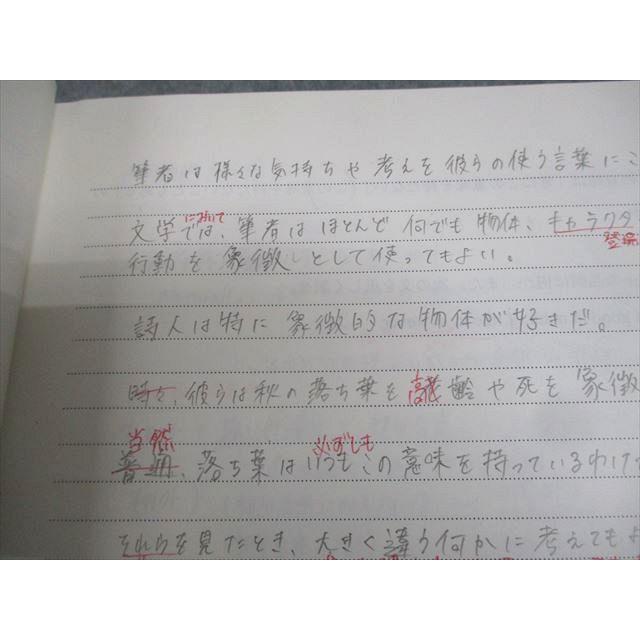 筆者は様々な気持ちや考えを彼らの使う言葉にこ
において
文学では、筆者はほとんど何でも物体、キャラクタ
登場
行動を象徴しとして使ってもよい。
詩人は特に象徴的な物体が好きだ。
時々、彼らは秋の落ち葉を高齢や死を象徴
当然 必ずしも
普通、落ち葉はいつもこの意味を持っているわけ
それらを見たとき、大きく違う何かに考えても